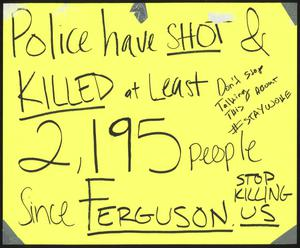 Police have SHOT &
KILLED at Least
Don't stop
Talking about
THIS
#STAYWOKE
2,195 people
Since FERGUSON.
STOP
KILLING
US